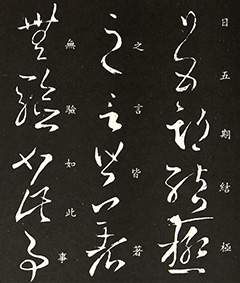 日五期結極
之言皆著
無驗如此事